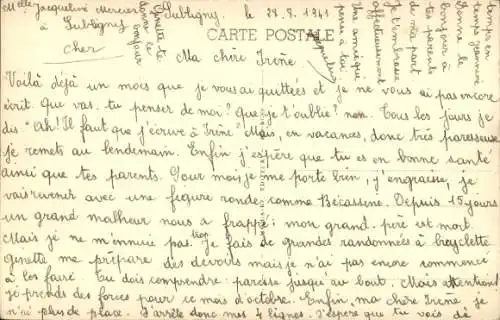 Melle Jacqueline Mercier
à Subligny
Cher
Subligny, le 28.8.1941
CARTE POSTALE
Ma chère Irène
Voilà déjà un mois que je vous ai quittées et je ne vous ai pas encore
écrit. Que vas-tu penser de moi? Que je t'oublie? non. Tous les jours je
dis "Ah! Il faut que j'écrive à Irène" Mais, en vacances, donc très paresseuse
je remets au lendemain. Enfin j'espère que tu es en bonne santé
ainsi que tes parents. Pour moi je me porte bien, j'engraisse, je
vais revenir avec une figure ronde comme Bécassine. Depuis 15 jours
un grand malheur nous a frappé; mon grand-père est mort.
Mais je ne m'ennuie pas. Je fais de grandes randonnées à bicyclette
Ginette me prépare des devoirs mais je n'ai pas encore commencé
à les faire. Tu dois comprendre: paresse jusqu'au bout. Mais attention
je prends des forces pour ce mois d'octobre. Enfin, ma chère Irène, je
n'ai plus de place. J'arrête donc mes 4 lignes. J'espère que tu vois dé
temps en
temps Jeannine
Donne le
bonjour à
tes parents
de ma part
Je t'embrasse
affectueusement
Une amie qui
pense à toi.
Jacqueline
Ginette te
donne le
bonjour